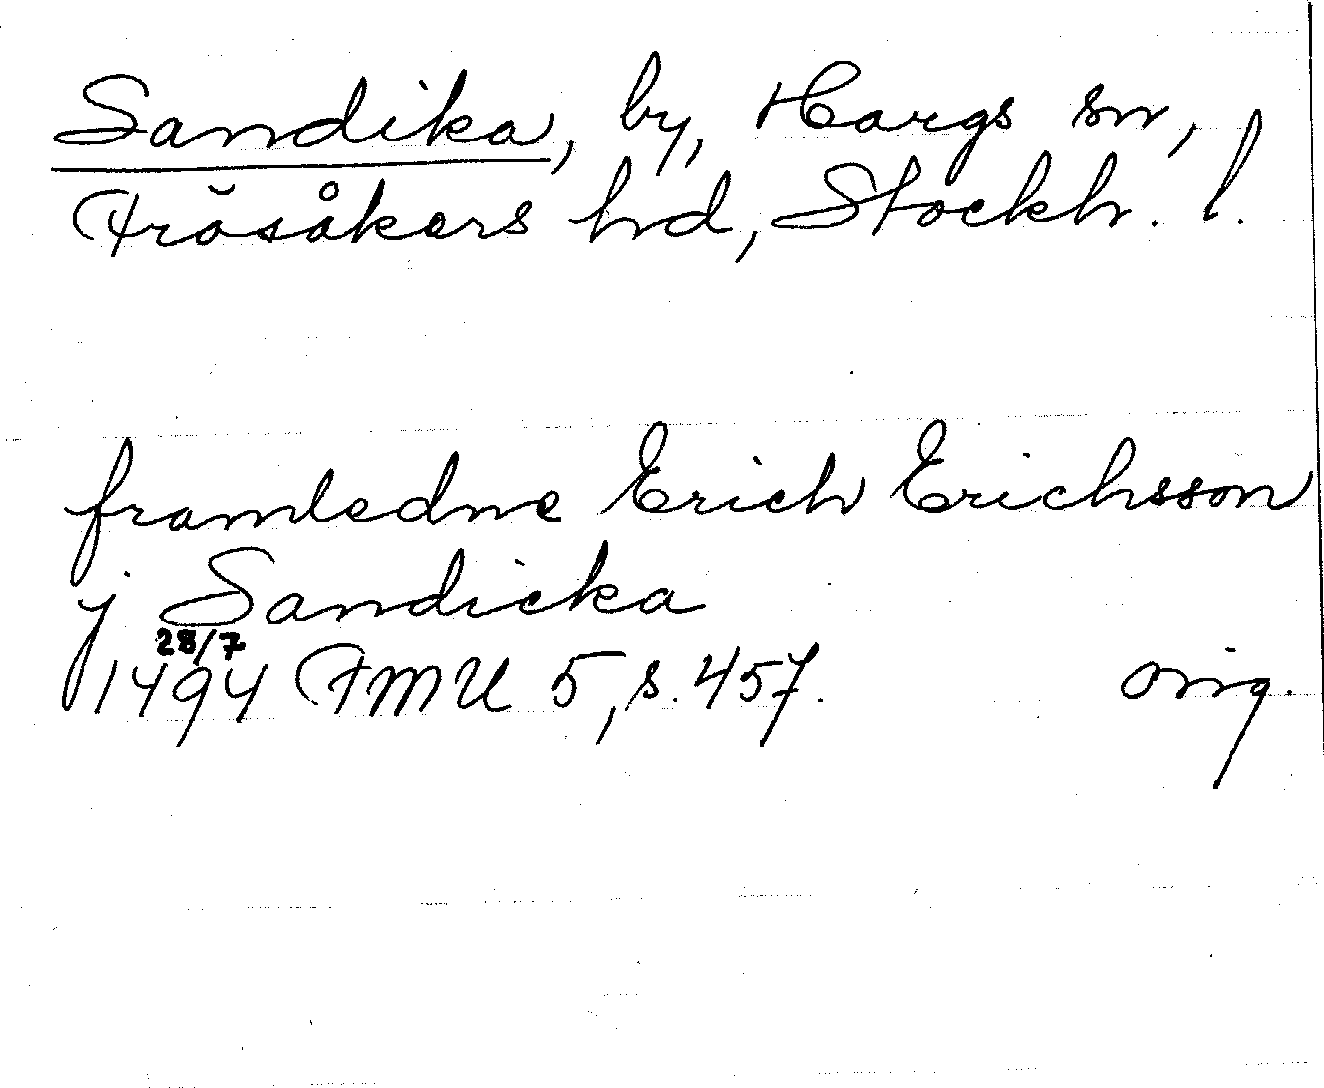 Sandika, by, Hargs sn,
Frösåkers hd, Stockh. l.
framledne Erich Erichsson
j Sandicka
28/7
1494 FMU 5, s. 457. orig.